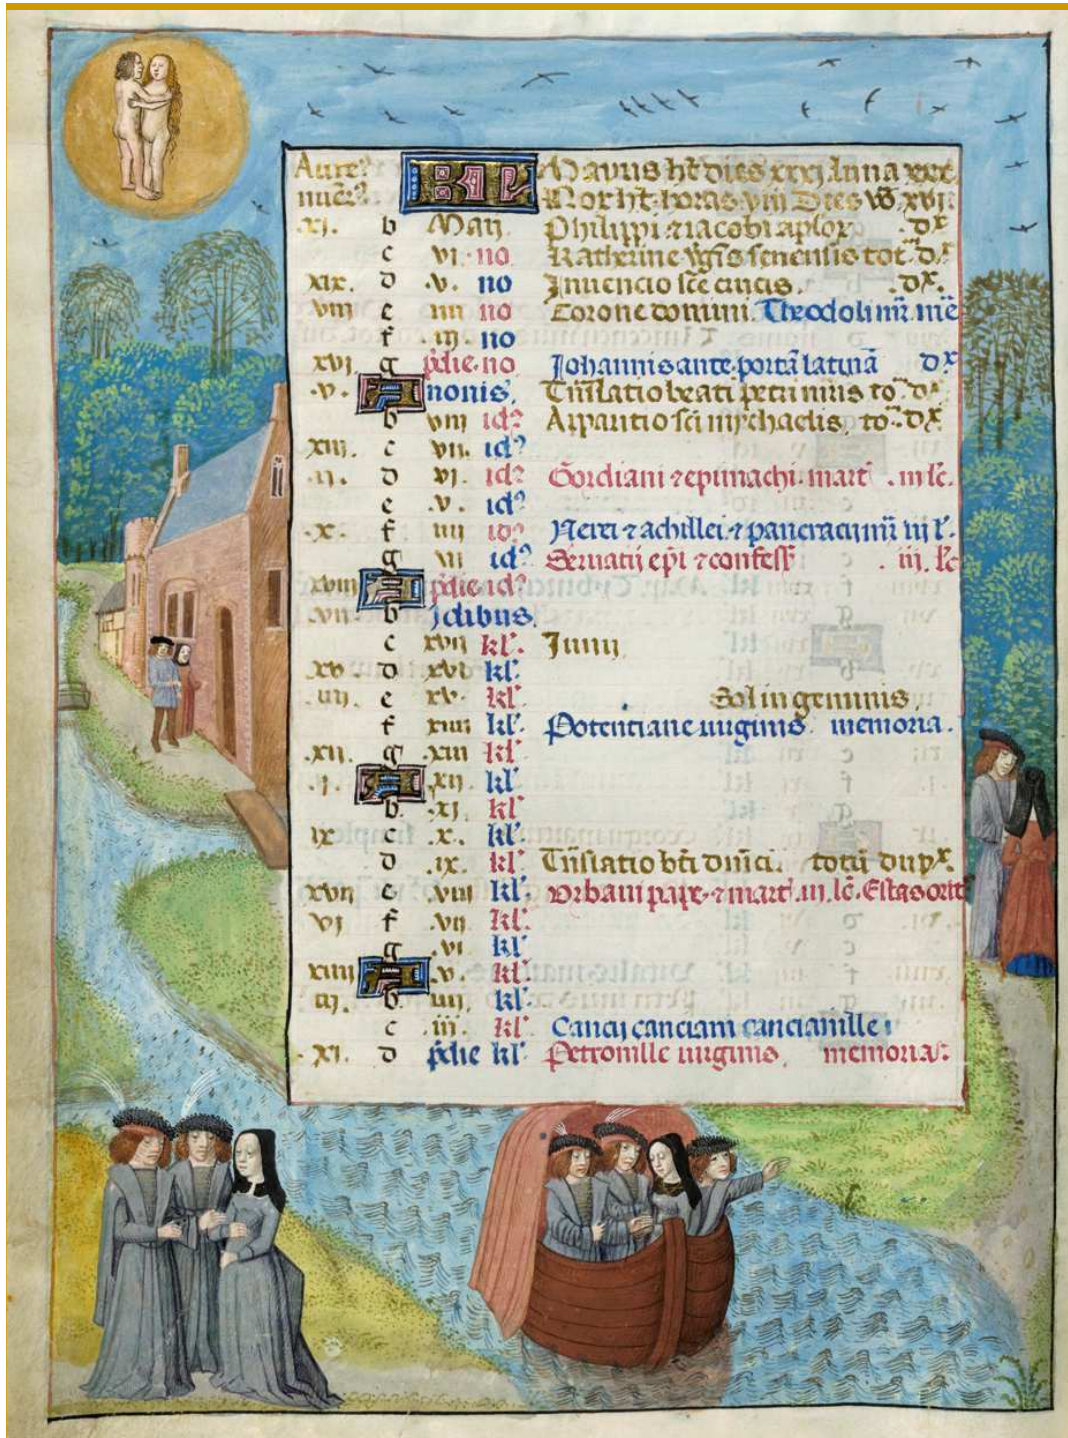 Aure9 KL Mayus ht dies xxxj luna xxx.
nuer9 Nox ht horas viij Dies vo xvj.
.xj. b Maij Philippi ⁊ iacobi aplor dx
c vi no Katherine vgis senensis tot dx
xix. d .v. no Inuencio sce crucis. .dx.
viij e iiij no Corone domini. Theodoli mr me
f .iij. no
xvj. g pdie no Johannis ante portā latinā dx
.v. A nonis. Trislatio beati petri mris to dx
b viij id9 Apparitio sci mychaelis. to dx
xiij. c vij. id9
.ij. d vj. id9 Gordiani ⁊ epimachi mart . iij lc.
e .v. id9
.x. f iiij id9 Nerei ⁊ achillei ⁊ pancracij mr iij l.
g iij id9 Seruatij epi ⁊ confess . iij. lc
xviij A pdie id9
.vij b Idibus.
c xvij kl. Junij
xv d xvi kl.
.iiij. e xv. kl. Sol in geminis.
f xiiij kl. Potenciane uirginis memoria.
.xij. g xiij kl
.j. A xij. kl.
b. .xj. kl
ix c .x. kl.
d .ix. kl. Trislatio bti dnici. totū dupx.
xvij e viij kl. Vrbani pape ⁊ mart. iij. lc. Estas orit
vj f .vij kl.
g .vi kl.
xiiij A .v. kl.
iij. b. iiij. kl.
c .iij. kl. Cancij canciani cancianille
.xj. d pdie kl. Petronille uirginis. memoria.